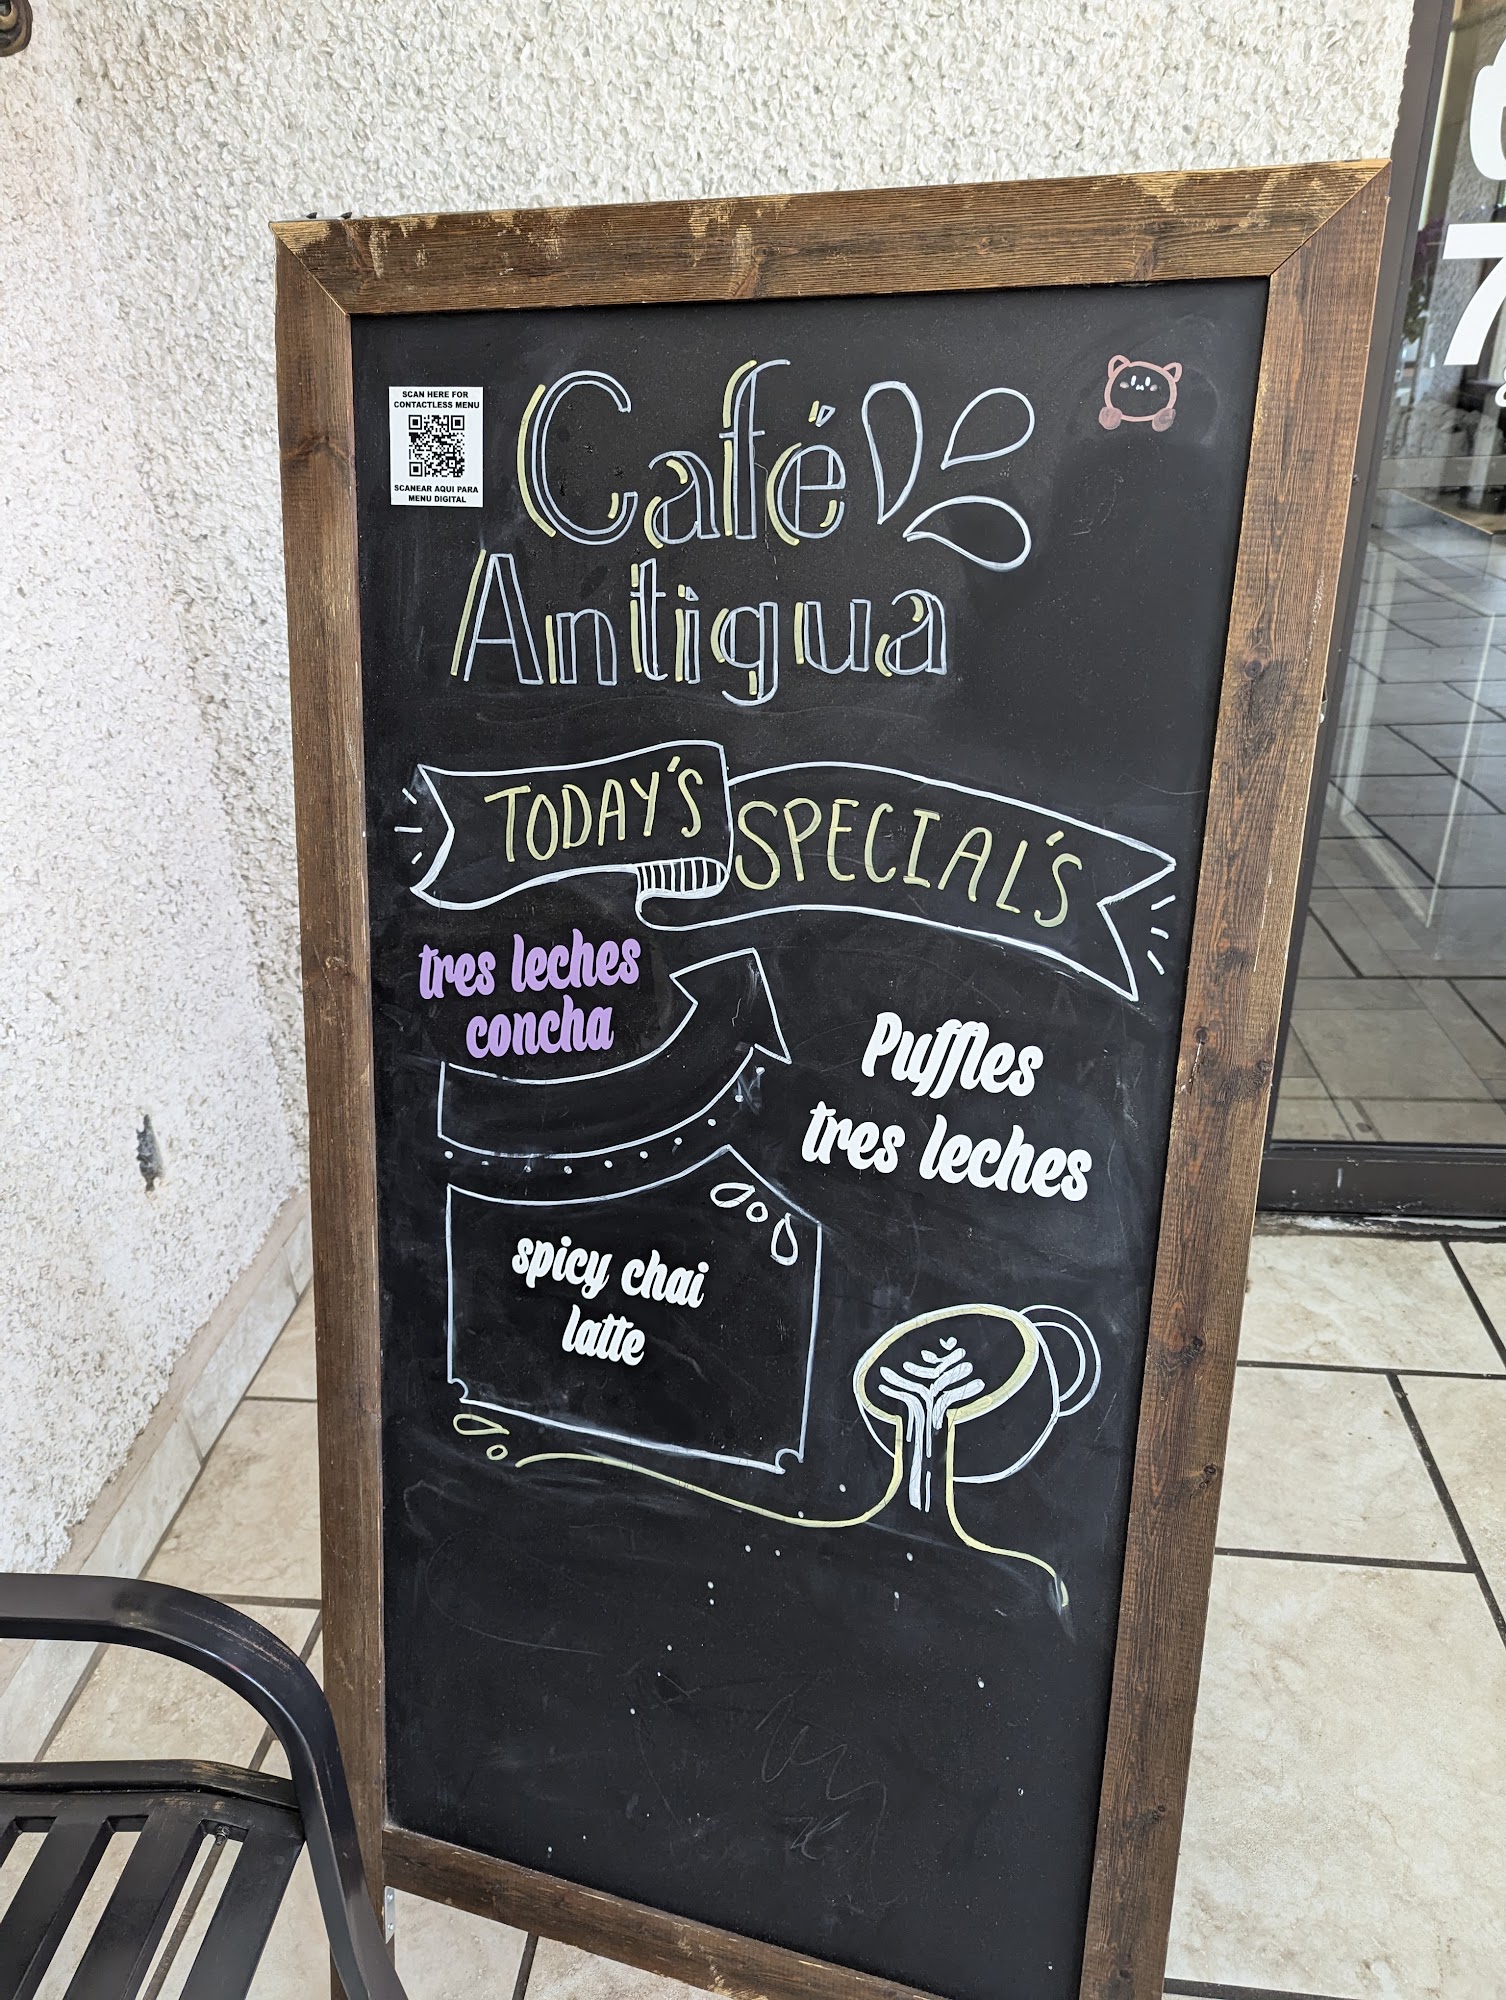 SCAN HERE FOR
CONTACTLESS MENU
SCANEAR AQUI PARA
MENU DIGITAL
Café
Antigua
TODAY'S SPECIAL'S
tres leches
concha
Puffles
tres leches
spicy chai
latte
7